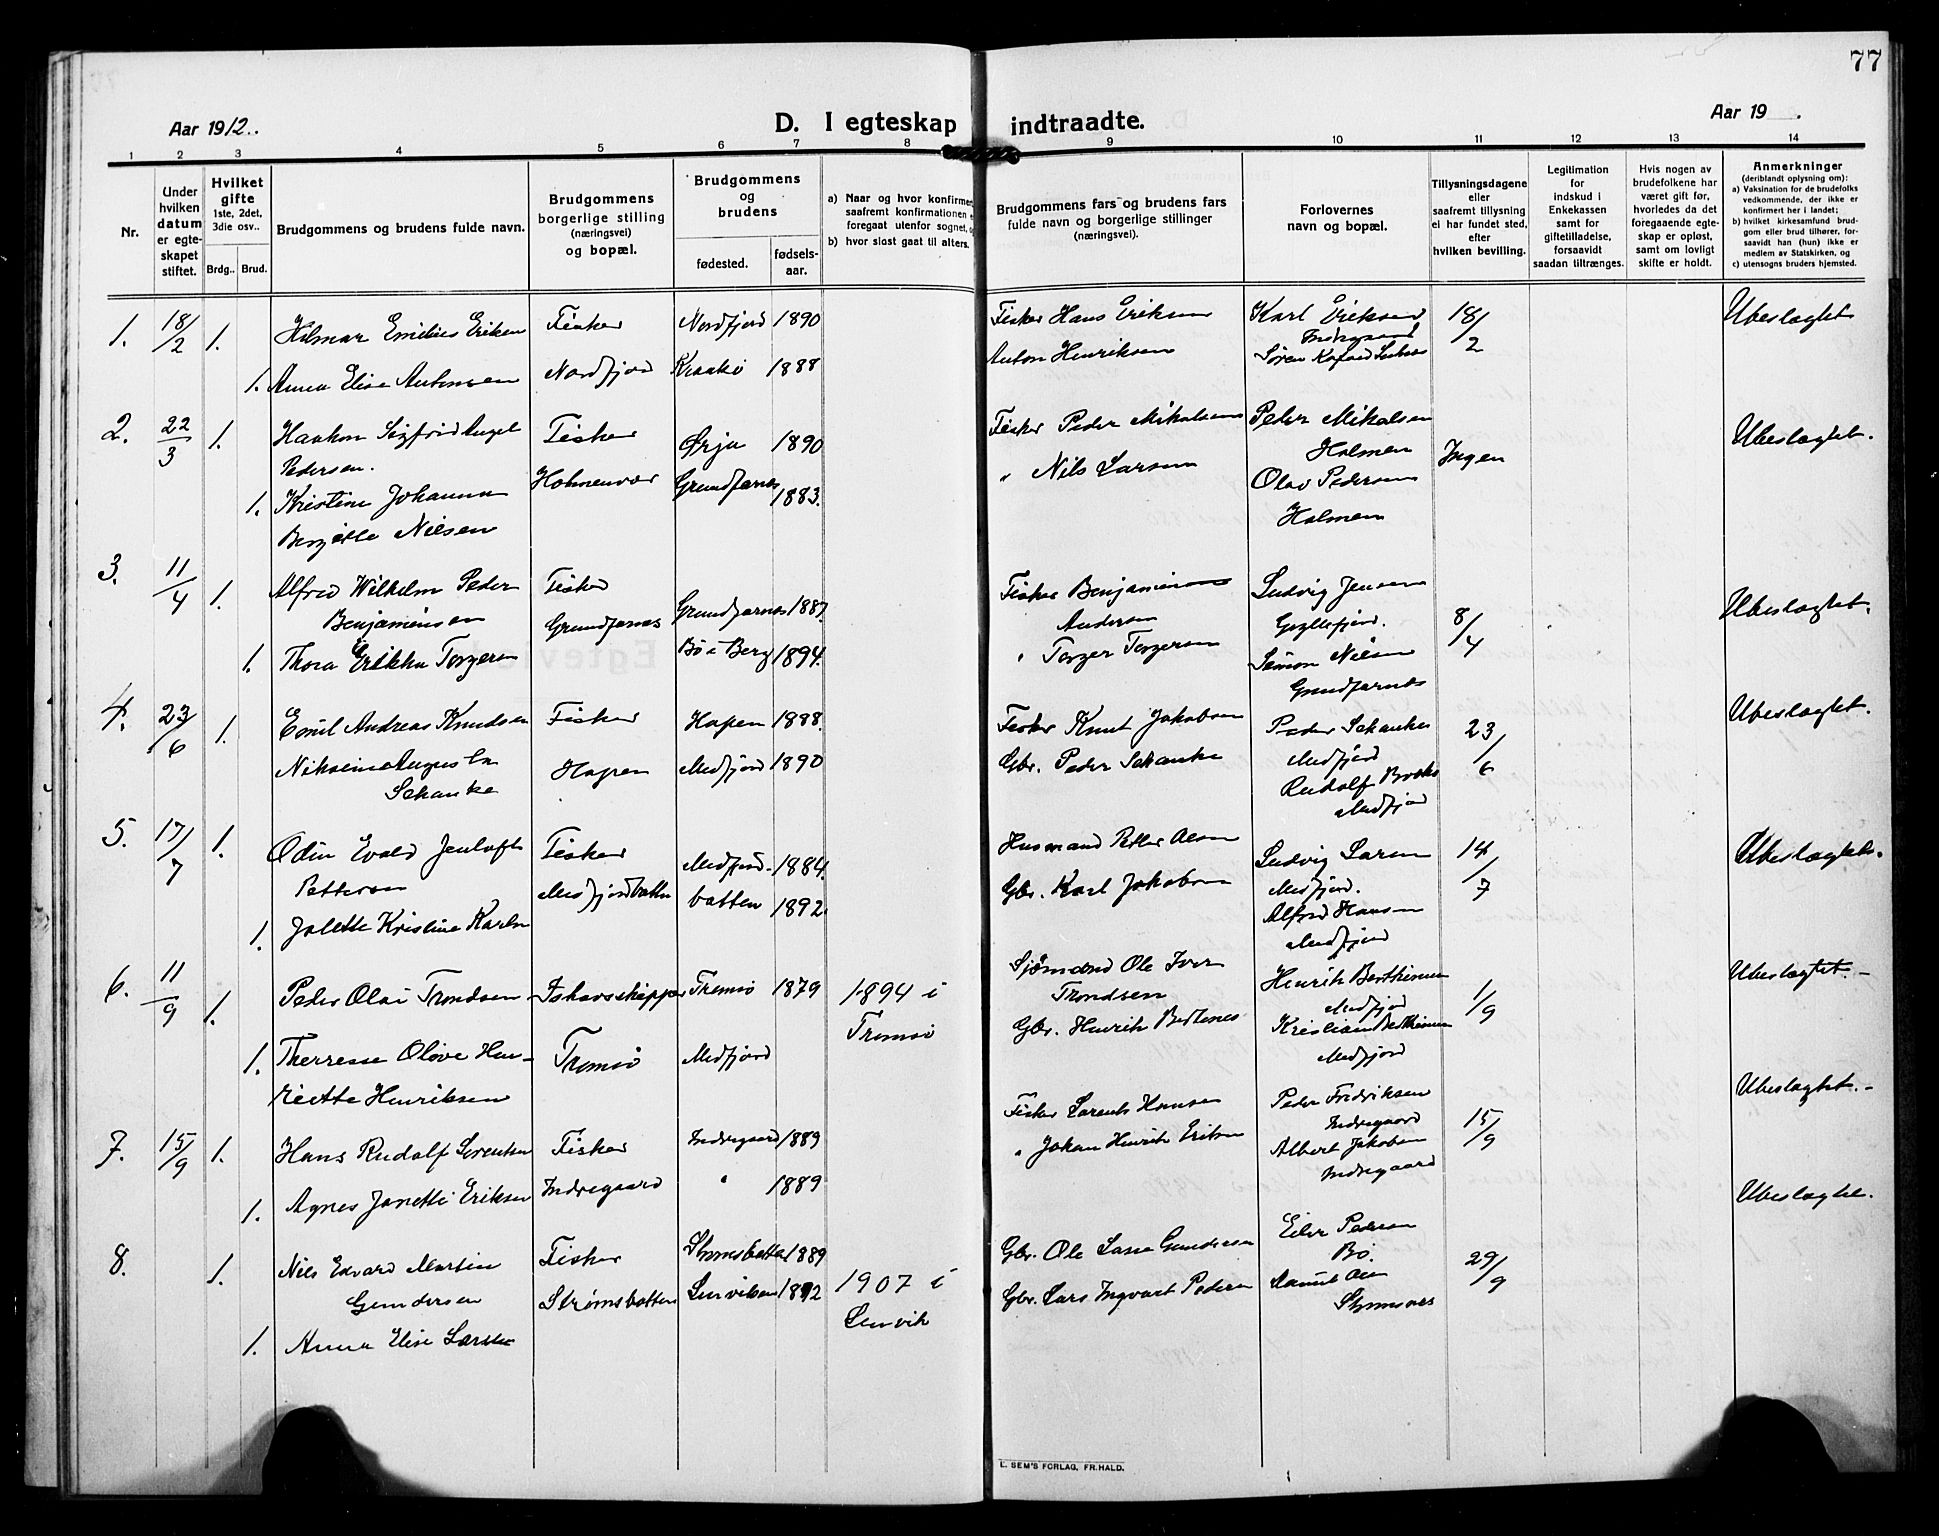 77
Aar 1912.
D. I egteskap indtraadte.
Aar 19 .
1 2 3 4 5 6 7 8 9 10 11 12 13 14
Nr.
Under hvilken datum er egteskapet stiftet.
Hvilket gifte 1ste, 2det, 3die osv..
Brdg.. Brud.
Brudgommens og brudens fulde navn.
Brudgommens borgerlige stilling (næringsvei) og bopæl.
Brudgommens og brudens
fødested.
fødselsaar.
a) Naar og hvor konfirmer
saafremt konfirmationen
foregaat utenfor sognet,
b) hvor sidst gaat til alters.
Brudgommens fars og brudens fars
fulde navn og borgerlige stillinger
(næringsvei).
Forlovernes
navn og bopæl.
Tillysningsdagene
eller
saafremt tillysning
ei har fundet sted,
efter
hvilken bevilling.
Legitimation
for
indskud i
Enkekassen
samt for
giftetilladelse,
forsaavidt
saadan tiltrænges.
Hvis nogen av
brudefolkene har
været gift før,
hvorledes da det
foregaaende egteskap er opløst,
samt om lovligt
skifte er holdt.
Anmerkninger
(deriblandt oplysning om):
a) Vaksination for de brudefolks
vedkommende, der ikke er
konfirmert her i landet;
b) hvilket kirkesamfund brudgom eller brud tilhører, forsaavidt han (hun) ikke er
medlem av Statskirken, og
c) utensogns bruders hjemsted.
1. 18/2 1. Hilmar Emilius Eriksen Fisker Nordfjord 1890 Fisker Hans Eriksen Karl Eriksen 18/2 Ubeslagtet
Indregaard
1. Anna Elise Antonsen Nordfjord Kraakø 1888 Anton Henriksen Søren
2. 22/3 1. Haakon Sigfrid Angel Fisker Ørja 1890 Fisker Peder Mikalsen Peder Mikalsen Ingen Ubeslagtet.
Pedersen. Holmenvær Holmen
1. Kristine Johanna Grundfarnes 1883. " Nils Larsen Olav Pedersen
Bergitte Nilsen Holmen
3. 11/4 1. Alfred Wilhelm Peder Fisker Grundfarnes 1887. Fisker Benjaminsen Ludvig Jensen 8/4 Ubeslagtet.
Benjaminsen Grundfarnes Andersen Gryllefjord.
1. Thora Erikka Torgersen Bø i Berg 1894. " Torger Torgersen Simon Nilsen
Grundfarnes
4. 23/6 1. Emil Andreas Knudsen Fisker Hopen 1888. Fisker Knut Jakobsen Peder Schanke 23/6 Ubeslagtet.
Nikoline Augusta Hopen Medfjord 1890 Gbr. Peder Schanke Medfjord
Schanke Rudolf
Medfjord
5. 17/7 1. Odin Evald Jentoft Fisker Medfjord- 1884. Husmand Petter Olsen Ludvig Larsen 14/7 Ubeslagtet.
Pettersen Medfjordbotten botten 1892. Gbr. Karl Jakobsen Medfjord.
1. Jolette Kristine Karlsen Alfred Hansen
Medfjord
6. 11/9 1. Peder Olai Trondsen Ishavsskipper Tromsø 1879 1894 i Sjømand Ole Iver Henrik Berthinsen 1/9 Ubeslagtet.
Tromsø Trondsen Medfjord
1. Therresse Olove Hen- Tromsø Medfjord Gbr. Henrik Kristian Berthinsen
riette Henriksen Medfjord
7. 15/9 1. Hans Rudolf Lorentsen Fisker Indregaard 1889 Fisker Lorents Hansen Peder Fredriksen 15/9 Ubeslagtet.
Indregaard
1. Agnes Janetti Eriksen Indregaard " 1889 " Johan Henrik Eriksen Albert Jakobsen
Indregaard
8. 1. Nils Edvard Martin Fisker Strømsbotten 1889 Gbr. Ole Lasse Gundersen Eilor Pedersen 29/9 Ubeslagtet.
Gundersen Bø.
1. Anna Elise Larsen Strømsbotten 1892 1907 i Gbr. Lars Ingvart Pedersen
Lenvik Strømsnes
L. SEM'S FORLAG, FR.HALD.